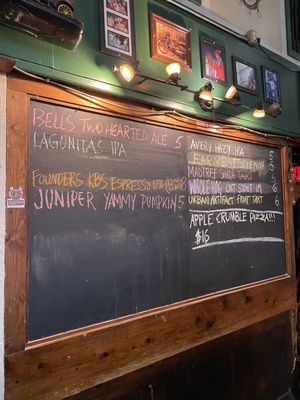 BELLS TWO HEARTED ALE 5
LAGUNITAS IPA
FOUNDERS KBS ESPRESSO
JUNIPER YAMMY PUMPKIN 5
AVERY HAZY IPA 5
EARNEST 5
MADTREE SHADE TART 5
WHOLE HOG OAT STOUT 6
URBAN ARTIFACT FRUIT TART 6
APPLE CRUMBLE PIZZA!!!
$15